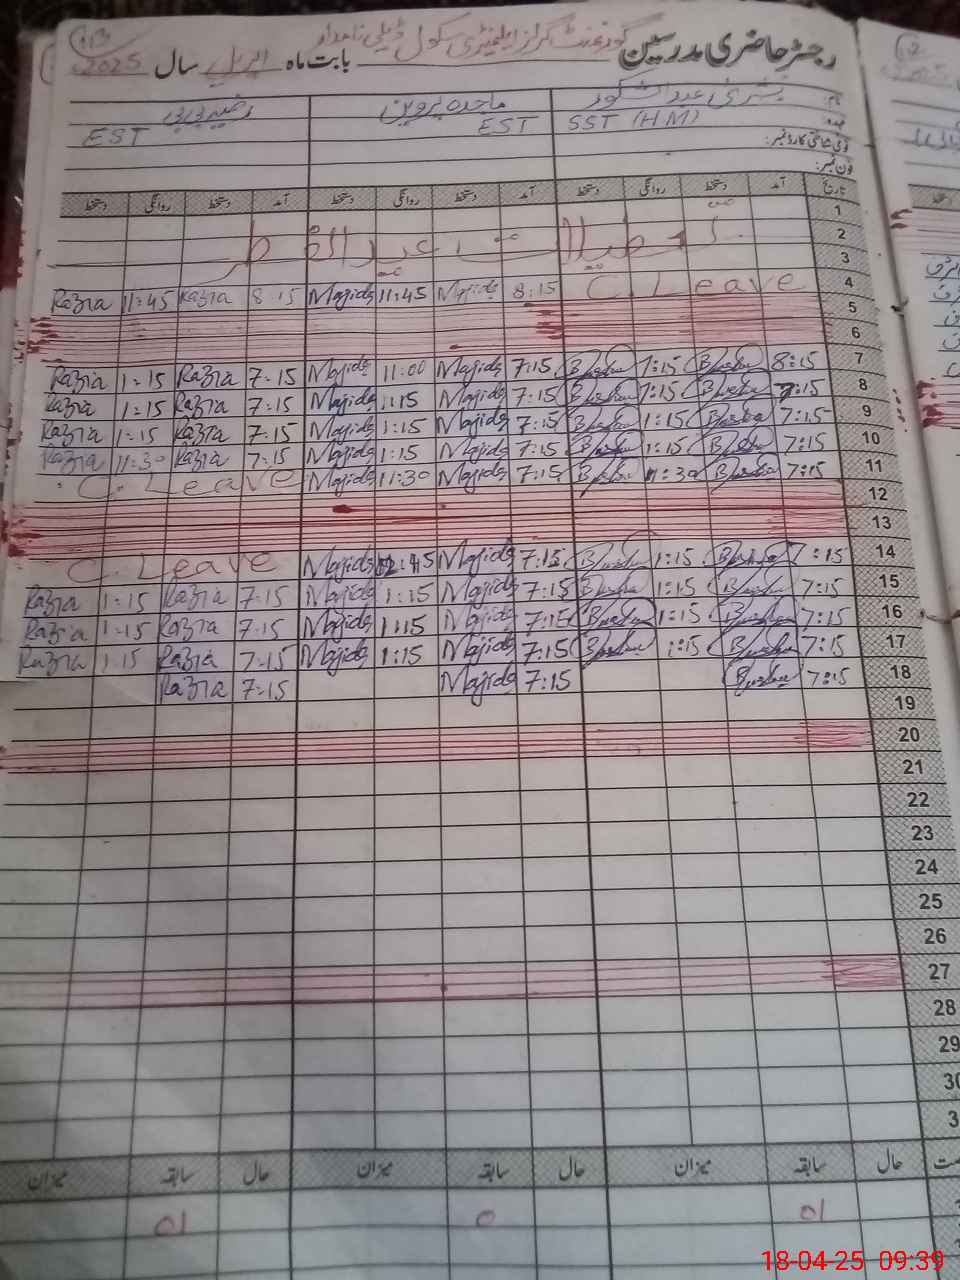 رجسٹر حاضری مدرسین گورنمنٹ گرلز ایلیمنٹری سکول بابت ماہ اپریل سال 2025
نام: بشریٰ عبدالشکور ماجدہ پروین رضیہ بی بی
عہدہ: SST (HM) EST EST
قومی شناختی کارڈ نمبر:
فون نمبر:
تاریخ آمد دستخط روانگی دستخط آمد دستخط روانگی دستخط آمد دستخط روانگی دستخط
1
2 تعطیلات عید الفطر
3
4 C. Leave 8:15 Majida 11:45 Majida 8:15 Razia 11:45 Razia
5
6
7 8:15 Bushra 1:15 Bushra 7:15 Majida 11:00 Majida 7:15 Razia 1:15 Razia
8 7:15 Bushra 1:15 Bushra 7:15 Majida 1:15 Majida 7:15 Razia 1:15 Razia
9 7:15 Bushra 1:15 Bushra 7:15 Majida 1:15 Majida 7:15 Razia 1:15 Razia
10 7:15 Bushra 1:15 Bushra 7:15 Majida 1:15 Majida 7:15 Razia 11:30 Razia
11 7:15 Bushra 11:30 Bushra 7:15 Majida 11:30 Majida C. Leave
12
13
14 7:15 Bushra 1:15 Bushra 7:15 Majida 12:45 Majida C. Leave
15 7:15 Bushra 1:15 Bushra 7:15 Majida 1:15 Majida 7:15 Razia 1:15 Razia
16 7:15 Bushra 1:15 Bushra 7:15 Majida 1:15 Majida 7:15 Razia 1:15 Razia
17 7:15 Bushra 1:15 Bushra 7:15 Majida 1:15 Majida 7:15 Razia 1:15 Razia
18 7:15 Bushra 7:15 Majida 7:15 Razia
19
20
21
22
23
24
25
26
27
28
29
30
حال سابقہ میزان حال سابقہ میزان حال سابقہ میزان
01 0 01
18-04-25 09:39